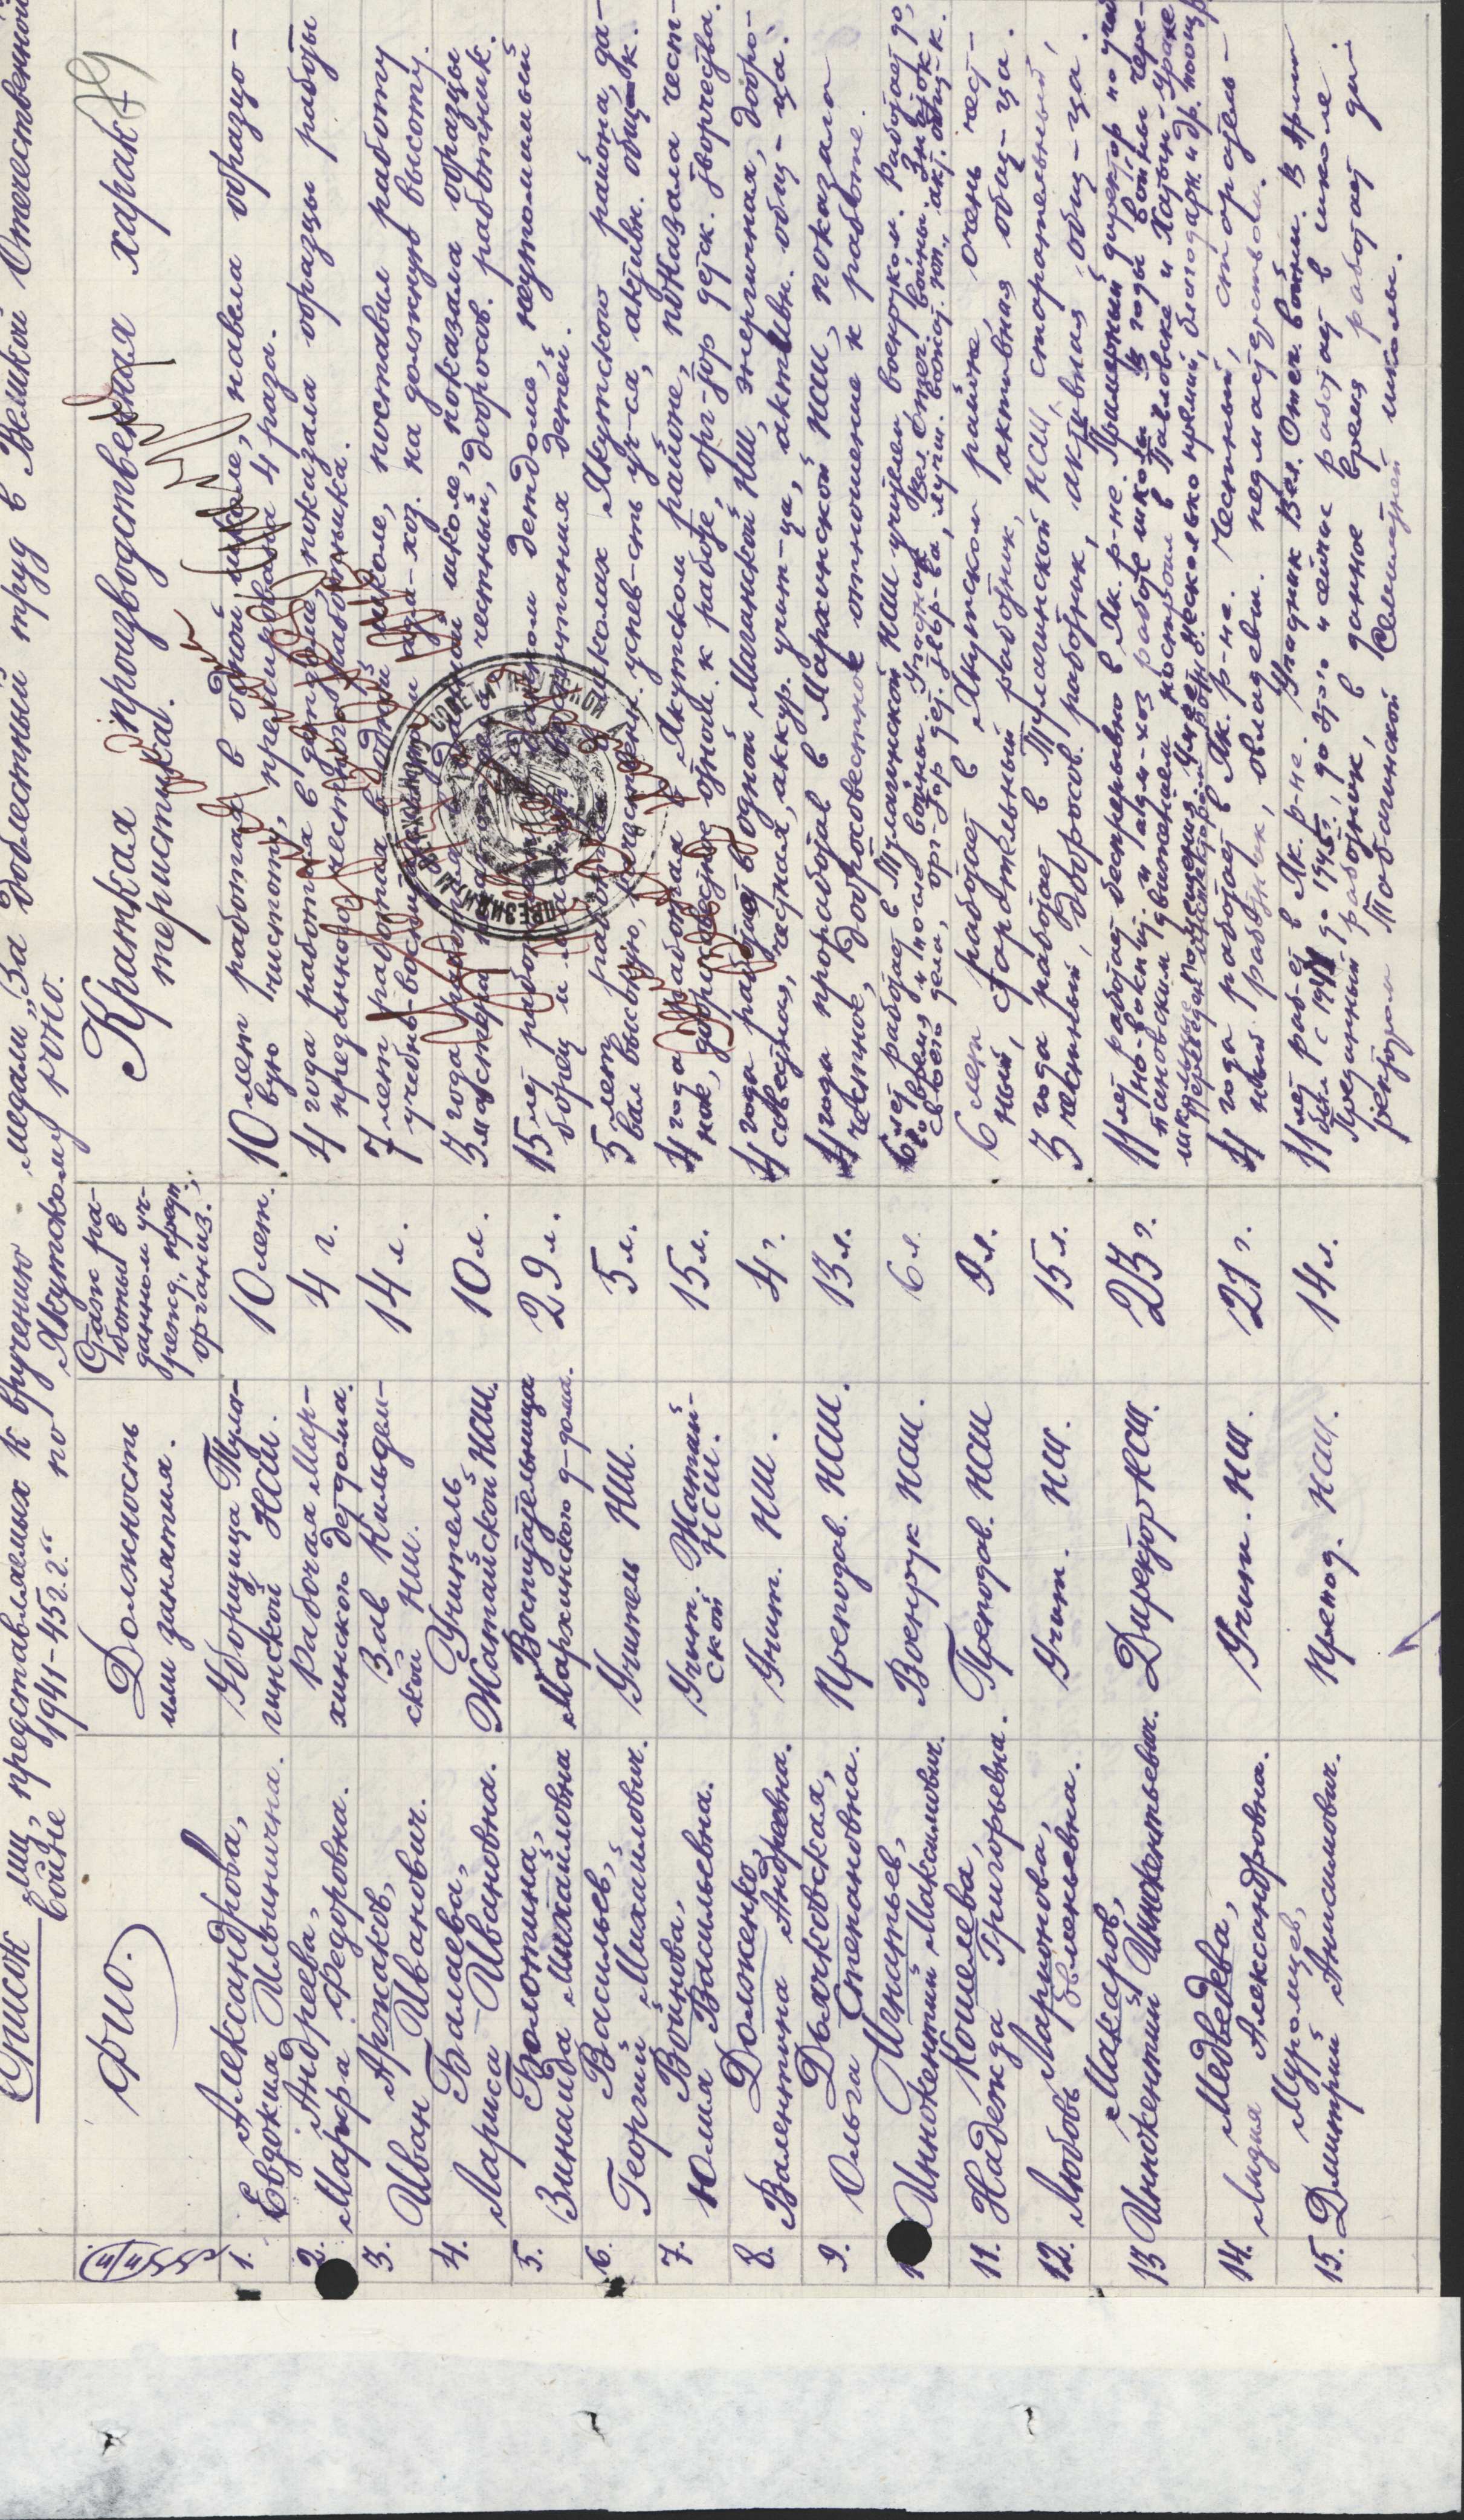 Список лиц, представляемых к вручению медали „За доблестный труд в Великой Отечественной
войне 1941-45 г.г." по Якутскому РОНО.
79
ФИО.
Должность
или занятия.
Стаж ра-
боты в
данном уч-
режд, предп.,
организ.
Краткая производственная харак-
теристика.
1. Александрова,
Евдокия Ильинична.
Уборщица Тула-
гинской НСШ.
10 лет.
10 лет работая в одной школе, навела образцо-
вую чистоту, премирована 4 раза.
2. Андреева,
Марфа Федоровна.
Рабочая Мар-
хинского детдома.
4 г.
4 года работая в детдоме, показала образцы работы
преданного, честного работника.
3. Аржаков,
Иван Иванович.
Зав Кильдем-
ской НШ.
14 л.
7 лет работая в одной школе, поставил работу
учебно-воспит. и адм-хоз. на должную высоту.
4. Балаева,
Лариса Ивановна.
Учитель
Жатайской НСШ.
10 л.
3 года работая в данной школе, показала образцы
мастера честный, добросов. работник.
5. Болотина,
Зинаида Михайловна
Воспитательница
Мархинского д-дома.
29 л.
15 лет работы в данном детдоме, неутомимый
борец и воспитания детей.
6. Васильев,
Георгий Михайлович.
Учитель НШ.
5 л.
5 лет работая в школах Якутского района, да-
вал высокую, качествен. успев-сть уч-ся, активн. общ-к.
7. Войнова,
Юлия Васильевна.
Учит. Жатай-
ской НСШ.
15 л.
4 года работая в Якутском районе, показала чест-
ное, добросовестное отнош. к работе, орг-тор детск. творчества.
8. Долженко,
Валентина Андреевна.
Учит. НШ.
4 г.
4 года работает в одной Маганской НШ, энергичная, добро-
совестная, честная, аккур. учит-ца, активн. общ-ца.
9. Дьячковская,
Ольга Степановна.
Преподов. НСШ.
13 л.
4 года проработав в Мархинской НСШ, показала
честное, добросовестное отношение к работе.
Игнатьев,
Иннокентий Максимович.
Военрук НСШ.
6 л.
6 лет работает в Тулагинской НСШ учителем военруком. Работает до,
во время и после войны. Участник Вел. Отеч. войны. Знаток
своего дела, орг-тор дет. твор-ва, лучш. вожат. пот., акт. общ-к.
11. Кошелева,
Надежда Григорьевна.
Преподов. НСШ
9 л.
6 лет работает в Якутском районе, очень чест-
ный, старательный работник, активная общ-ца.
12. Ларионова,
Любовь
Учит. НШ.
15 л.
3 года работает в Тулагинской НСШ, старательный,
честный, добросов. работник, активная общ-ца.
13 Макаров,
Иннокентий Иннокентьевич.
Директор НСШ.
23 г.
11 лет работает беспрерывно в Як. р-не. Примерный директор по учеб-
но-воспит. и адм-хоз работе школы. В годы войны чере-
пановским движением построил в Павловске и Хатын-Уряхе
школьные помещения. Имеет несколько премий, благодарн. и др. поощр.
14. Медведева,
Лидия Александровна.
Учит. НШ.
21 г.
4 года работает в Як. р-не. Честный, старатель-
ный работник, овладевш. педмастерством.
15. Муромцев,
Дмитрий Анисимович.
Препод. НСШ.
14 л.
11 лет раб-ет в Як. р-не. Участник Вел. Отеч. войны. В Армии
был с до 1945 г., до этого и сейчас работает в школе
Преданный работник, в данное время работает ди-
ректором Тобагинской Семилетней школы.